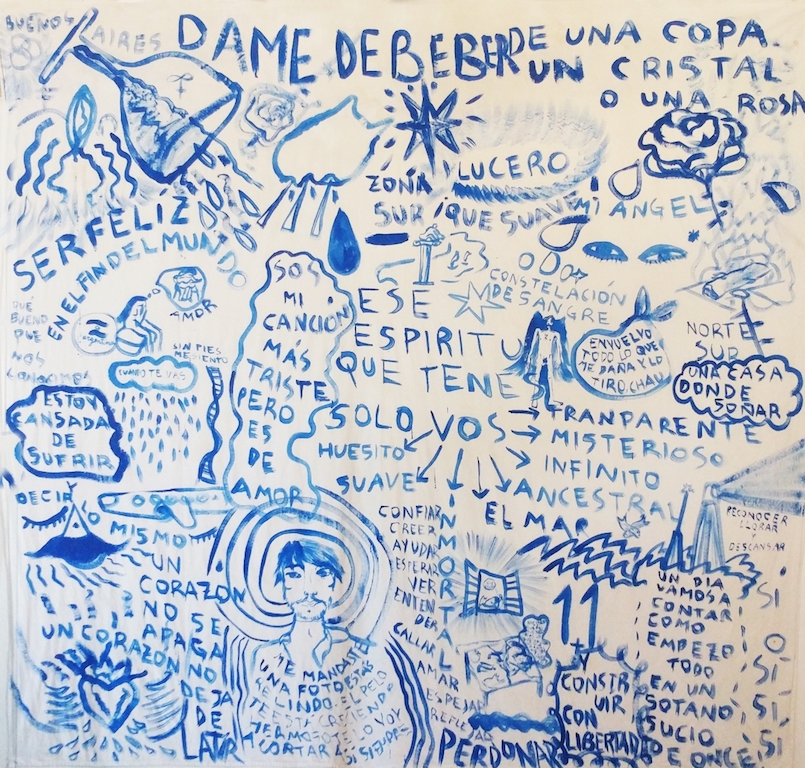 BUENOS
AIRES
DAME DE BEBER DE UNA COPA
UN CRISTAL
O UNA ROSA
LUCERO
ZONA
SUR ¡QUE SUAVE
MI ANGEL
SER FELIZ
EN EL FIN DEL MUNDO
AMOR
QUE
BUENO
QUE
NOS
SIN PIES
ME SIENTO
CUANDO TE VAS
ESTOY
CANSADA
DE
SUFRIR
SOS
MI
CANCIÓN
MÁS
TRISTE
PERO
ES
DE
AMOR
CONSTELACIÓN
DE SANGRE
ESE
ESPIRITU
QUE TENES
ENVUELVO
TODO LO QUE
ME DAÑA Y LO
TIRO. CHAU
NORTE
SUR
UNA CASA
DONDE
SOÑAR
SOLO VOS
HUESITO
SUAVE
TRANPARENTE
MISTERIOSO
INFINITO
ANCESTRAL
EL MAR
INMORTAL
DECIR
LO MISMO
UN
CORAZON
NO SE
APAGA
UN CORAZON NO
DEJA
DE
LATIR
ME MANDASTE
UNA FOTO ESTAS
RE LINDO. EL PELO
TE ESTA CRECIENDO
HERMOSO
CORTAR
CONFIAR
CREER
AYUDAR
ESPERAR
VER
ENTEN
DER
CALLAR
AMAR
ESPEJAR
REFLEJAR
PERDONAR
11
Y
CONSTR
UIR
CON
LIBERTAD
RECONOCER
LLORAR
Y
DESCANSAR
UN DIA
VAMOS A
CONTAR
COMO
EMPEZO
TODO
EN UN
SOTANO
SUCIO
DE ONCE
SI
O
SI
SI
SI
SI